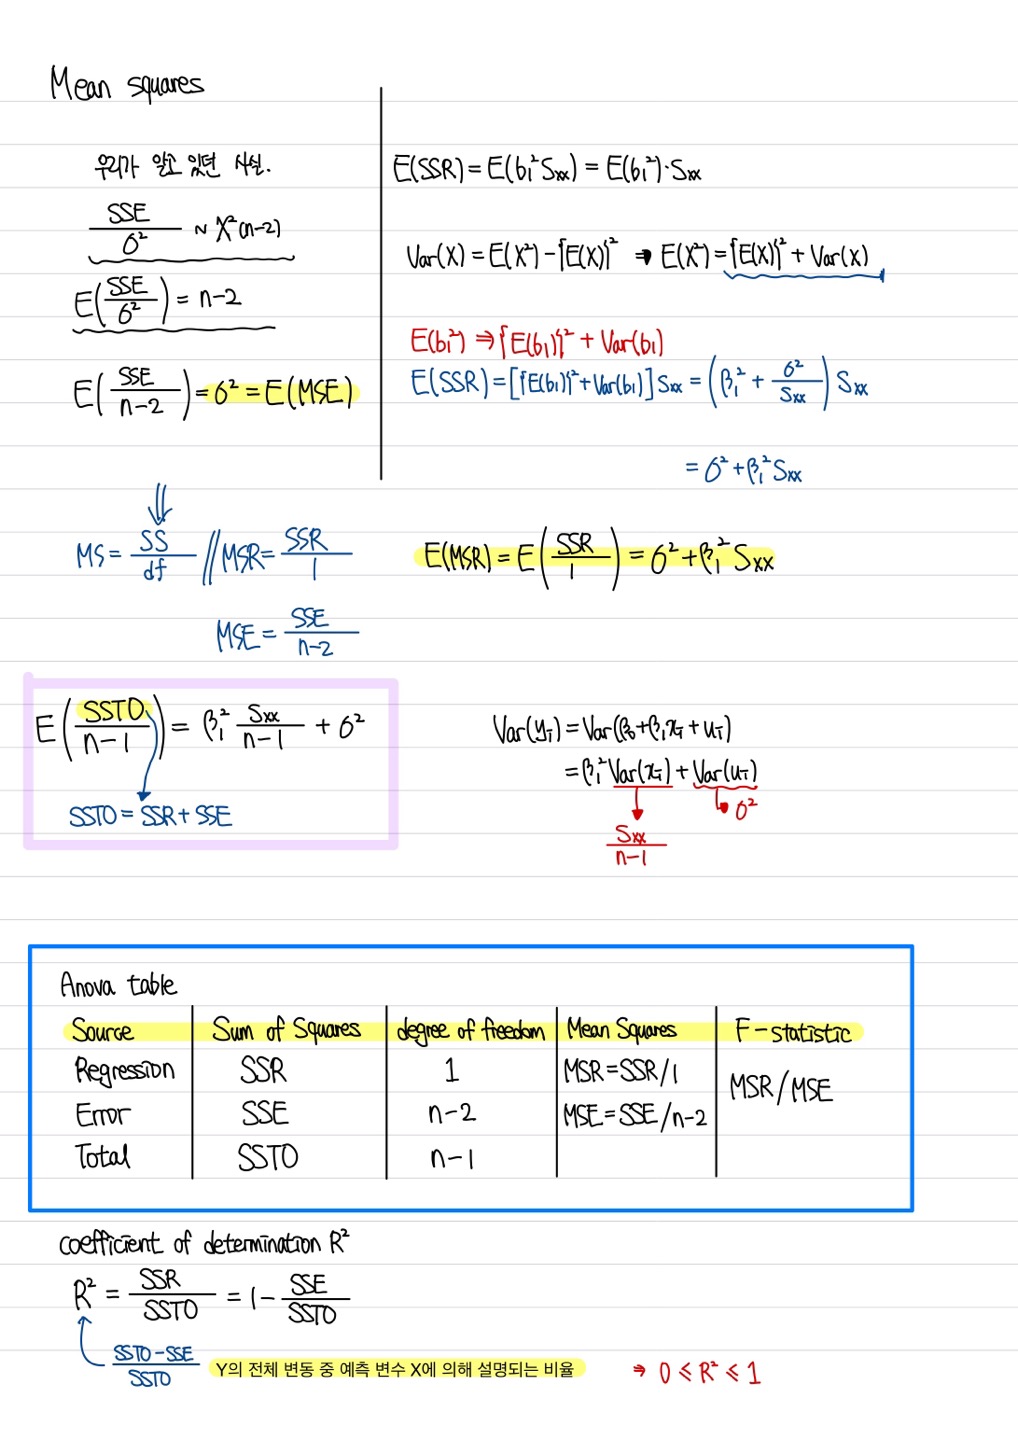 Mean squares
우리가 알고 있던 사실.
SSE/σ² ~ χ²(n-2)
E(SSE/σ²) = n-2
E(SSE/n-2) = σ² = E(MSE)
E(SSR) = E(b₁²Sxx) = E(b₁²)·Sxx
Var(X) = E(X²) - {E(X)}² ⇒ E(X²) = {E(X)}² + Var(X)
E(b₁²) ⇒ {E(b₁)}² + Var(b₁)
E(SSR) = [{E(b₁)}² + Var(b₁)] Sxx = (β₁² + σ²/Sxx) Sxx
= σ² + β₁²Sxx
MS = SS/df // MSR = SSR/1
MSE = SSE/n-2
E(MSR) = E(SSR/1) = σ² + β₁²Sxx
E(SSTO/n-1) = β₁² Sxx/n-1 + σ²
SSTO = SSR + SSE
Var(yᵢ) = Var(β₀ + β₁xᵢ + uᵢ)
= β₁²Var(xᵢ) + Var(uᵢ)
σ²
Sxx/n-1
Anova table
Source Sum of Squares degree of freedom Mean Squares F-statistic
Regression SSR 1 MSR = SSR/1 MSR/MSE
Error SSE n-2 MSE = SSE/n-2
Total SSTO n-1
coefficient of determination R²
R² = SSR/SSTO = 1 - SSE/SSTO
SSTO-SSE/SSTO Y의 전체 변동 중 예측 변수 X에 의해 설명되는 비율 ⇒ 0 ≤ R² ≤ 1